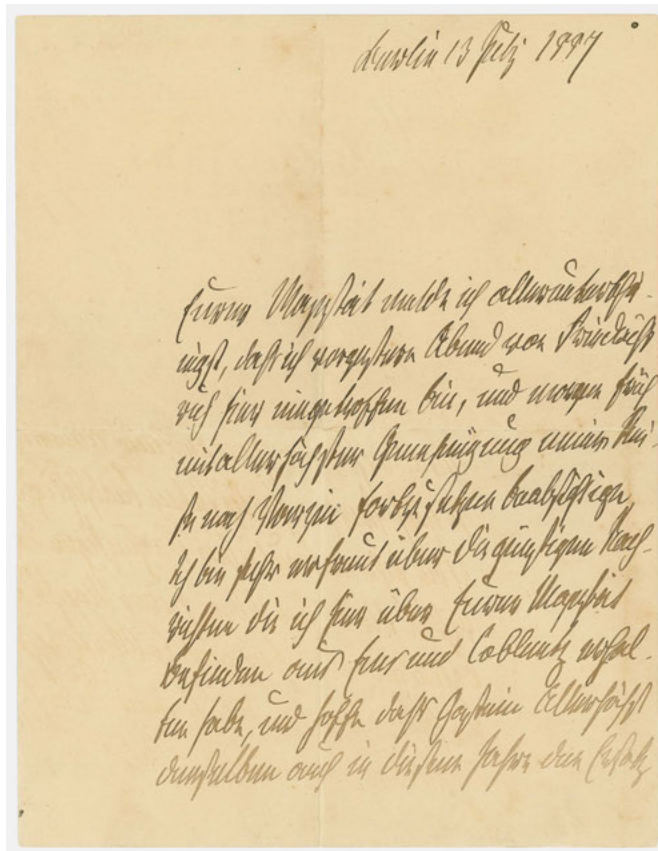 Berlin 13 July 1887
Eurer Majestät melde ich allerunterthä-
nigst, daß ich vorgestern Abend von Friedrichs-
ruh hier eingetroffen bin, und morgen früh
mit allerhöchster Genehmigung meine Rei-
se nach Varzin fortzusetzen beabsichtige.
Ich bin sehr erfreut über die günstigen Nach-
richten die ich hier über Eurer Majestät
Befinden aus Ems und Coblentz erhal-
ten habe, und hoffe daß Gastein Allerhöchst
denselben auch in diesem Jahre den Ersatz